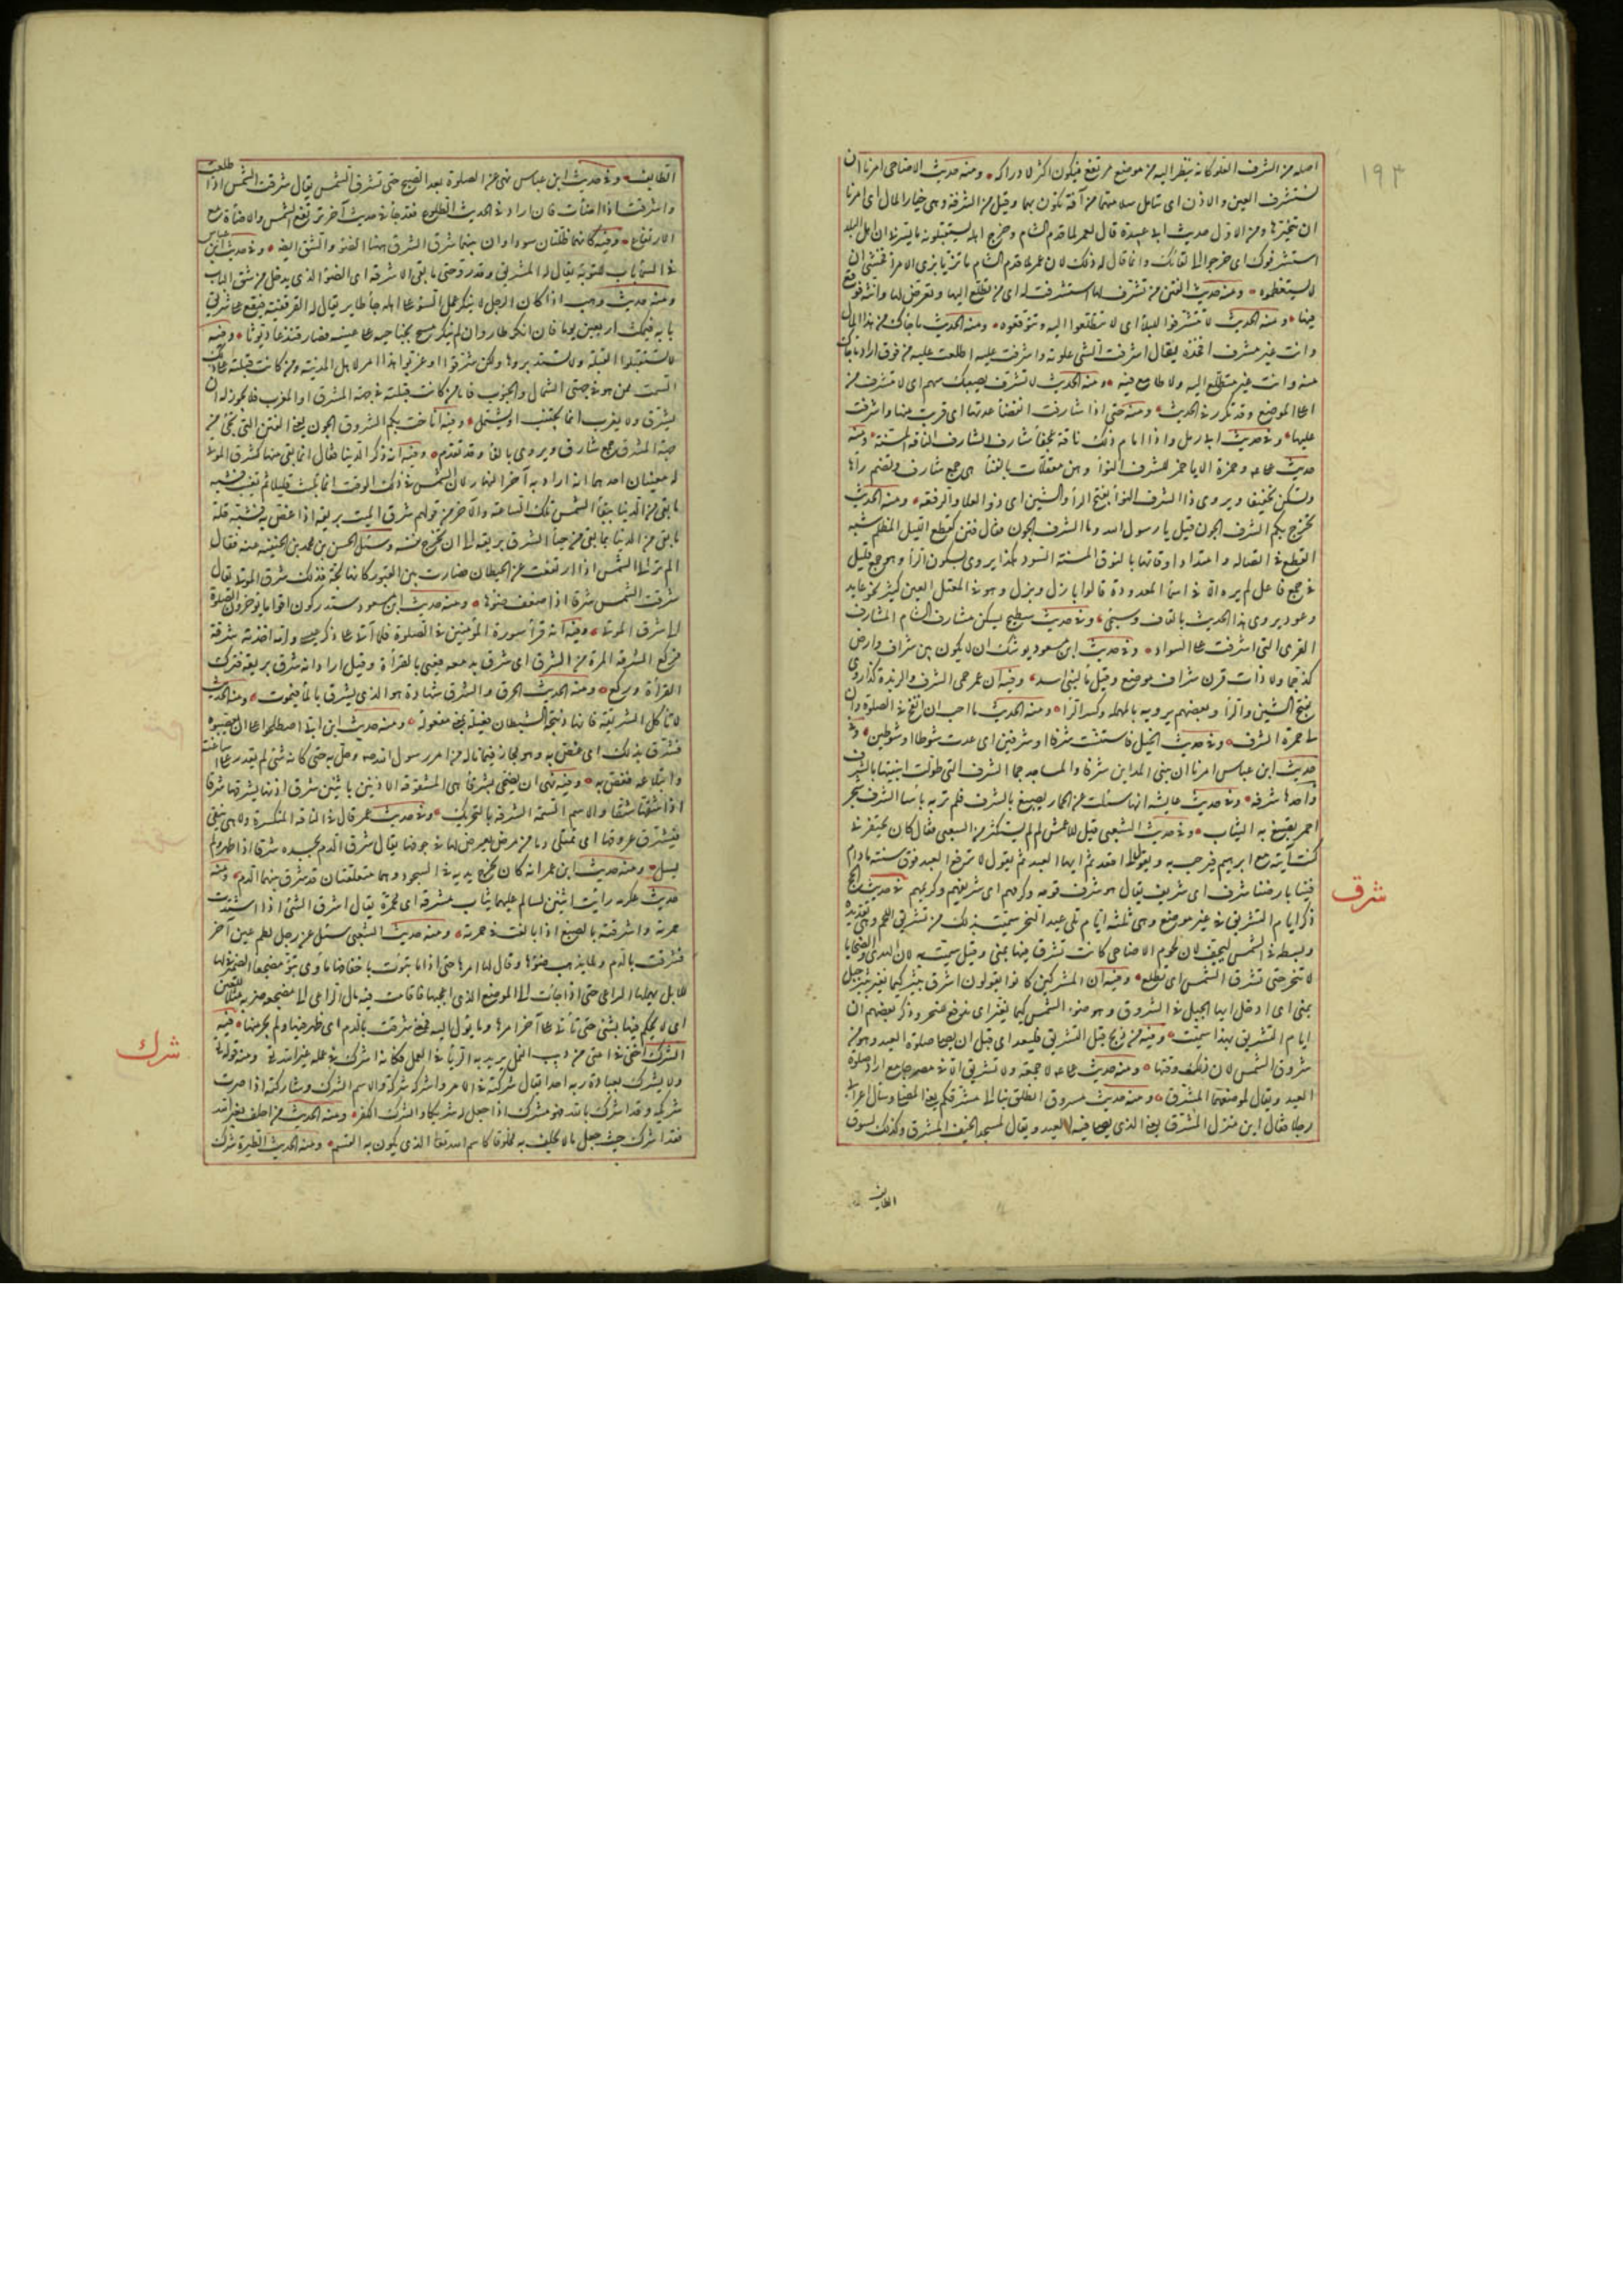 ١٩٣
اصله من الشرف العلو كانه ينظر اليه من موضع مرتفع فيكون اكثر لادراكه ومنه حديث الاضاحى امرنا ان
نستشرف العين والاذن اى نتامل سلامتهما من آفة تكون بهما وقيل من الشرفة وهى خيار المال اى امرنا
ان نتخيرها ومن الاول حديث ابى عبيدة قال لعمر لما قدم الشام وخرج اهله يستقبلونه ما يسرنى ان اهل البلد
استشرفوك اى خرجوا الى لقائك وانما قال له ذلك لان عمر لما قدم الشام ما تزيا بزى الامرأ فخشى ان
لا يستعظموه ومنه حديث الفتن من تشرف لها استشرفت له اى من تطلع اليها وتعرض لها واتته فوقع
فيها ومنه الحديث لا تتشرفوا للبلأ اى لا تتطلعوا اليه وتتوقعوه ومنه الحديث ما جاءك من هذا المال
وانت غير مشرف فخذه يقال اشرفت الشى علوته واشرفت عليه اطلعت عليه من فوق اراد ما جاءك
منه وانت غير متطلع اليه ولا طامع فيه ومنه الحديث لا تشرف يصيبك سهم اى لا تتشرف من
اعلى الموضع وقد تكرر فى الحديث ومنه حتى اذا شارفت انقضأ عدتها اى قربت منها واشرفت
عليها وفى حديث ابن زمل واذا امام ذلك ناقة عجفأ شارف الشارف الناقة المسنة ومنه
حديث على وحمزة الا يا حمز للشرف النوأ وهن معقلات بالفنأ هى جمع شارف وتضم رأها
وتسكن تخفيفا ويروى ذا الشرف النوأ بفتح الرأ والشين اى ذو العلا والرفعة ومنه الحديث
تخرج بكم الشرف الجون قيل يا رسول الله وما الشرف الجون فقال فتن كقطع الليل المظلم شبه
الفتن فى اتصالها وامتداد اوقاتها بالنوق المسنة السود هكذا يروى بسكون الرأ وهو جمع قليل
فى جمع فاعل لم يرد الا فى اسمأ معدودة قالوا بازل وبزل وهو فى المعتل العين كثير نحو عايد
وعود ويروى هذا الحديث بالقاف وسيجئ وفى حديث سطيح يسكن مشارف الشام المشارف
القرى التى اشرفت على السواد وفى حديث ابن مسعود يوشك ان لا يكون بين شراف وارض
كذا جما ولا ذات قرن شراف موضع وقيل ما لبنى اسد وفيه ان عمر حمى الشرف والربذة كذا روى
بفتح الشين والرأ وبعضهم يرويه بالمهملة وكسر الرأ ومنه الحديث ما احب ان انفخ فى الصلوة وان
لى ممر الشرف وفى حديث الخيل فاستنت شرفا او شرفين اى عدت شوطا او شوطين وفى
حديث ابن عباس امرنا ان نبنى المداين شرفا والمساجد جما الشرف التى طولت ابنيتها بالشرف
واحدها شرفة وفى حديث عايشة انها سئلت عن الخمار يصبغ بالشرف فلم تر به باسا الشرف شجر
احمر يصبغ به الثياب وفى حديث الشعبى قيل للاعمش لم لم تستكثر من الشعبى فقال كان يحتقرنى
كنت آتيه مع ابرهيم فيرحب به ويقول لى اقعد ثم ايها العبد ثم يقول لا نرفع العبد فوق سنته ما دام
فينا بارضنا شرف اى شريف يقال هو شرف قومه وكرمهم اى شريفهم وكريمهم فى حديث الحج
شرق
ذكر ايام التشريق فى غير موضع وهى ثلثة ايام تلى عيد النحر سميت بذلك من تشريق اللحم وهى تقديده
وبسطه فى الشمس ليجف لان لحوم الاضاحى كانت تشرق فيها بمنى وقيل سميت به لان الهدى والضحايا
لا تنحر حتى تشرق الشمس اى تطلع وفيه ان المشركين كانوا يقولون اشرق ثبير كيما نغير ثبير جبل
بمنى اى ادخل ايها الجبل فى الشروق وهو ضوء الشمس كيما نغير اى ندفع للنحر وذكر بعضهم ان
ايام التشريق بهذا سميت وفيه من ذبح قبل التشريق فليعد اى قبل ان يصلى صلوة العيد وهو من
شروق الشمس لان ذلك وقتها ومنه حديث على لا جمعة ولا تشريق الا فى مصر جامع اراد صلوة
العيد ويقال لموضعها المشرق ومنه حديث مسروق انطلق بنا الى مشرقكم يعنى المصلى وسأل اعرابى
رجلا فقال اين منزل المشرق يعنى الذى يصلى فيه العيد ويقال لمسجد الخيف المشرق وكذلك لسوق
الطايف
الطايف وفى حديث ابن عباس نهى عن الصلوة بعد الصبح حتى تشرق الشمس يقال شرقت الشمس اذا طلعت
واشرقت اذا اضأت فان اراد فى الحديث الطلوع فقد جأ فى حديث آخر حتى ترتفع الشمس والاضأة مع
الارتفاع وفيه كانهما ظلتان سوداوان بينهما شرق الشرق ههنا الضؤ والشق ايضا وفى حديث ابن عباس
فى السمأ باب للتوبة يقال له المشريق وقد رد حتى ما بقى الا شرقه اى الضؤ الذى يدخل من شق الباب
ومنه حديث وهب اذا كان الرجل لا ينكر عمل السؤ على اهله جأ طاير يقال له القرقفنة فيقع على مشريق
بابه فيمكث اربعين يوما فان انكر طار وان لم ينكر مسح بجناحيه على عينيه فصار قنذعا ديوثا وفيه
لا تستقبلوا القبلة ولا تستدبروها ولكن شرقوا او غربوا هذا امر لاهل المدينة ومن كانت قبلته على ذلك
السمت ممن هو فى جهتى الشمال والجنوب فاما من كانت قبلته فى جهة المشرق او المغرب فلا يجوز له ان
يشرق ولا يغرب انما يجتنب او يشتمل وفيه اناخت بكم الشروق الجون يعنى الفتن التى تجئ من
جهة المشرق جمع شارق ويروى بالفا وقد تقدم وفيه انه ذكر الدنيا فقال انما بقى منها كشرق الموتى
له معنيان احدهما انه اراد به آخر النهار لان الشمس فى ذلك الوقت انما تلبث قليلا ثم تغيب فشبه
ما بقى من الدنيا ببقأ الشمس تلك الساعة والآخر من قولهم شرق الميت بريقه اذا غص به فشبه قلة
ما بقى من الدنيا بما بقى من حياة الشرق بريقه الى ان تخرج نفسه وسئل الحسن بن محمد بن الحنيفة عنه فقال
الم تر الى الشمس اذا ارتفعت عن الحيطان فصارت بين القبور كانها لجة فذلك شرق الموتى يقال
شرقت الشمس شرقا اذا ضعف ضوؤها ومنه حديث ابن مسعود ستدركون اقواما يؤخرون الصلوة
الى شرق الموتى وفيه انه قرأ سورة المؤمنين فى الصلوة فلما اتى على ذكر عيسى وامه اخذته شرقة
فركع الشرقة المرة من الشرق اى شرق بدمعه فعيى بالقرأة وقيل اراد انه شرق بريقه فترك
القرأة وركع ومنه الحديث الحرق والشرق شهادة هو الذى يشرق بالمأ فيموت ومنه الحديث
لا تأكل الشريقة فانها ذبيحة الشيطان فعيلة بمعنى مفعولة ومنه حديث ابن ابى اصطلحوا على ان يعصبوه
فشرق بذلك اى غص به وهو مجاز فيما ناله من امر رسول الله صلعم وحل به حتى كانه شئ لم يقدر على اساغته
وابتلاعه فغص به وفيه نهى ان يضحى بشرقأ هى المشقوقة الاذنين باثنين شرق اذنها يشرقها شرقا
اذا شقها شقا والاسم السمة الشرقة بالتحريك وفى حديث عمر قال فى الناقة المنكسرة ولا هى بفقى
فتشرق عروقها اى تمتلى دما من مرض يعرض لها فى جوفها يقال شرق الدم بجسده شرقا اذا ظهر ولم
يسل ومنه حديث ابن عمر انه كان يخرج يديه فى السجود وهما متعلقتان قد شرق بينهما الدم ومنه
حديث عكرمه رايت ابنين لسالم عليهما ثياب مشرقة اى محمرة يقال اشرق الشئ اذا اشتدت
حمرته واشرقته بالصبغ اذا بالغت فى حمرته ومنه حديث الشعبى سئل عن رجل لطم عين آخر
فشرقت بالدم ولما يذهب ضوؤها فقال لها امرها حتى اذا ما تبوأت باخفافها ماوى تبوأ مضجعا الضمير فى لها
للابل يهملها الراعى حتى اذا جأت الى الموضع الذى اعجبها فاقامت فيه مال الراعى الى مضجعه ضربه مثلا للعين
اى لا يحكم فيها بشئ حتى تأتى على آخر امرها وما يؤل اليه فمعنى شرقت بالدم اى ظهر فيها ولم يجر منها فيه
شرك
الشرك اخفى فى امتى من دبيب النمل يريد به الريأ فى العمل فكانه اشرك فى عمله غير الله تعالى ومنه قوله تعالى
ولا يشرك بعبادة ربه احدا يقال شركته فى الامر واشركه شركة والاسم الشرك وشاركته اذا صرت
شريكه وقد اشرك بالله فهو مشرك اذا جعل له شريكا والشرك الكفر ومنه الحديث من احلف بغير الله
فقد اشرك حيث جعل ما لا يحلف به محلوفا كاسم الله تعالى الذى يكون به القسم ومنه الحديث الطيرة شرك